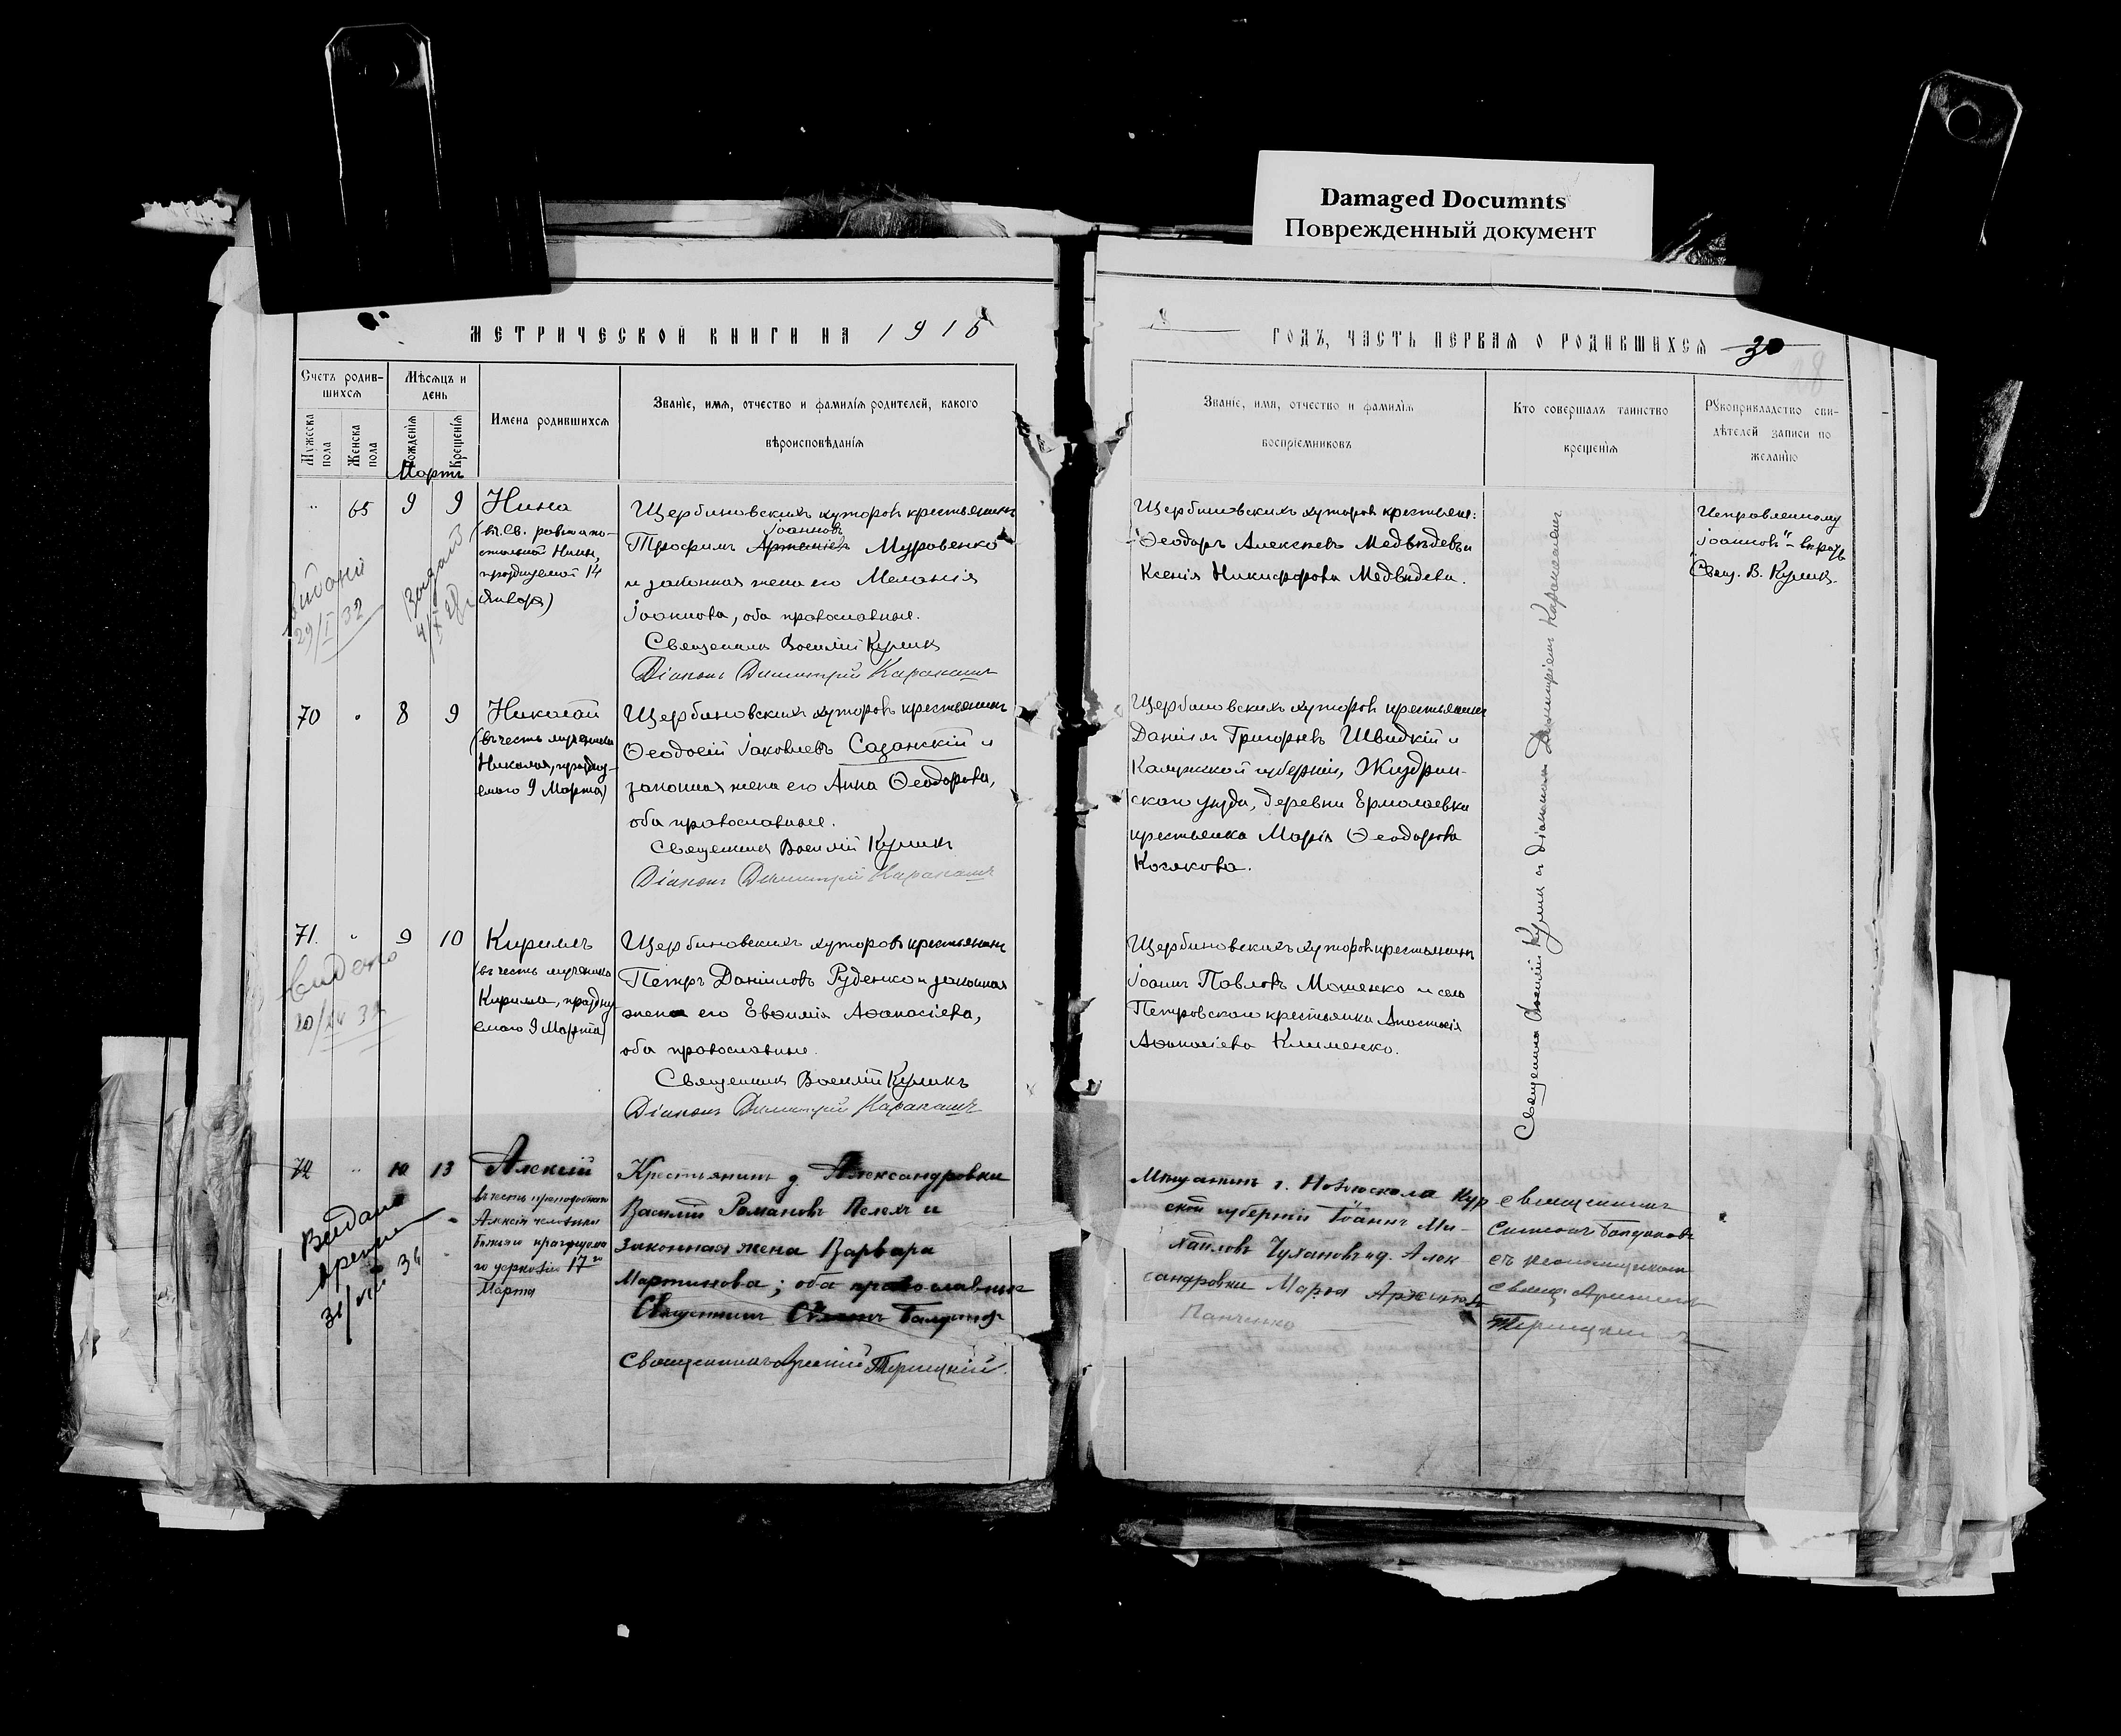 Damaged Documnts
Поврежденный документ
МЕТРИЧЕСКОЙ КНИГИ НА 1915
ГОДЪ, ЧАСТЬ ПЕРВАЯ О РОДИВШИХСЯ 30
28
Счетъ родив-
шихся
Мужеска
пола
Женска
пола
Мѣсяцъ и
день
Рожденія
Крещенія
Имена родившихся
Званіе, имя, отчество и фамилія родителей, какого
вѣроисповѣданія
Званіе, имя, отчество и фамилія
воспріемниковъ
Кто совершалъ таинство
крещенія
Рукоприкладство сви-
дѣтелей записи по
желанію
Мартъ
65 9 9 Нина
(въ св. равноапо-
стольной Нины,
празднуемой 14
Января)
29/I 32
Щербиновскихъ хуторовъ крестьянинъ
Іоанновъ
Трофимъ Артемiевъ Муровенко
и законная жена его Меланія
Іоакимова, оба православные.
Священникъ Василій Куликъ
Діаконъ Димитрій Каракашъ
Щербиновскихъ хуторовъ крестьяне:
Ѳеодоръ Алексѣевъ Медвѣдевъ и
Ксенія Никифорова Медвѣдева.
Священникъ Василій Куликъ съ діакономъ Димитріемъ Каракашемъ
Исправленному
"Іоанновъ" - вѣрить
Свящ. В. Куликъ.
70 8 9 Николай
(въ честь мученика
Николая, праздну-
емаго 9 Марта)
Щербиновскихъ хуторовъ крестьянинъ
Ѳеодосій Іаковлевъ Сазанскій и
законная жена его Анна Ѳеодорова,
оба православные.
Священникъ Василій Куликъ
Діаконъ Димитрій Каракашъ
Щербиновскихъ хуторовъ крестьянинъ
Даніилъ Григорьевъ Швидкій и
Калужской губерніи, Жиздрин-
скаго уѣзда, деревни Ермолаевки
крестьянка Марія Ѳеодорова
Косякова.
71. 9 10 Кириллъ
(въ честь мученика
Кирилла, праздну-
емаго 9 Марта)
Видано
Щербиновскихъ хуторовъ крестьянинъ
Петръ Даніиловъ Руденко и законная
жена его Евѳимія Аѳанасіева,
оба православные.
Священникъ Василій Куликъ
Діаконъ Димитрій Каракашъ
Щербиновскихъ хуторовъ крестьянинъ
Іоаннъ Павловъ Мошенко и села
Петровскаго крестьянка Анастасія
Аѳанасіева Клименко.
72 10 13 Алексій
въ честь преподобнаго
Алексія человѣка
Божія празднуема
го церковію 17го
Марта
Видано
Крестьянинъ д. Александровки
Василій Романовъ Пелехъ и
законная жена Варвара
Мартинова; оба православные
Священникъ
Священникъ Терницкій.
Мѣщанинъ г. Новооскола Кур
ской губерніи Іоаннъ Ми-
хайловъ Чухановъ и д. Алек
сандровки Марія
Панченко
Священникъ
Симеонъ
съ
свящ.